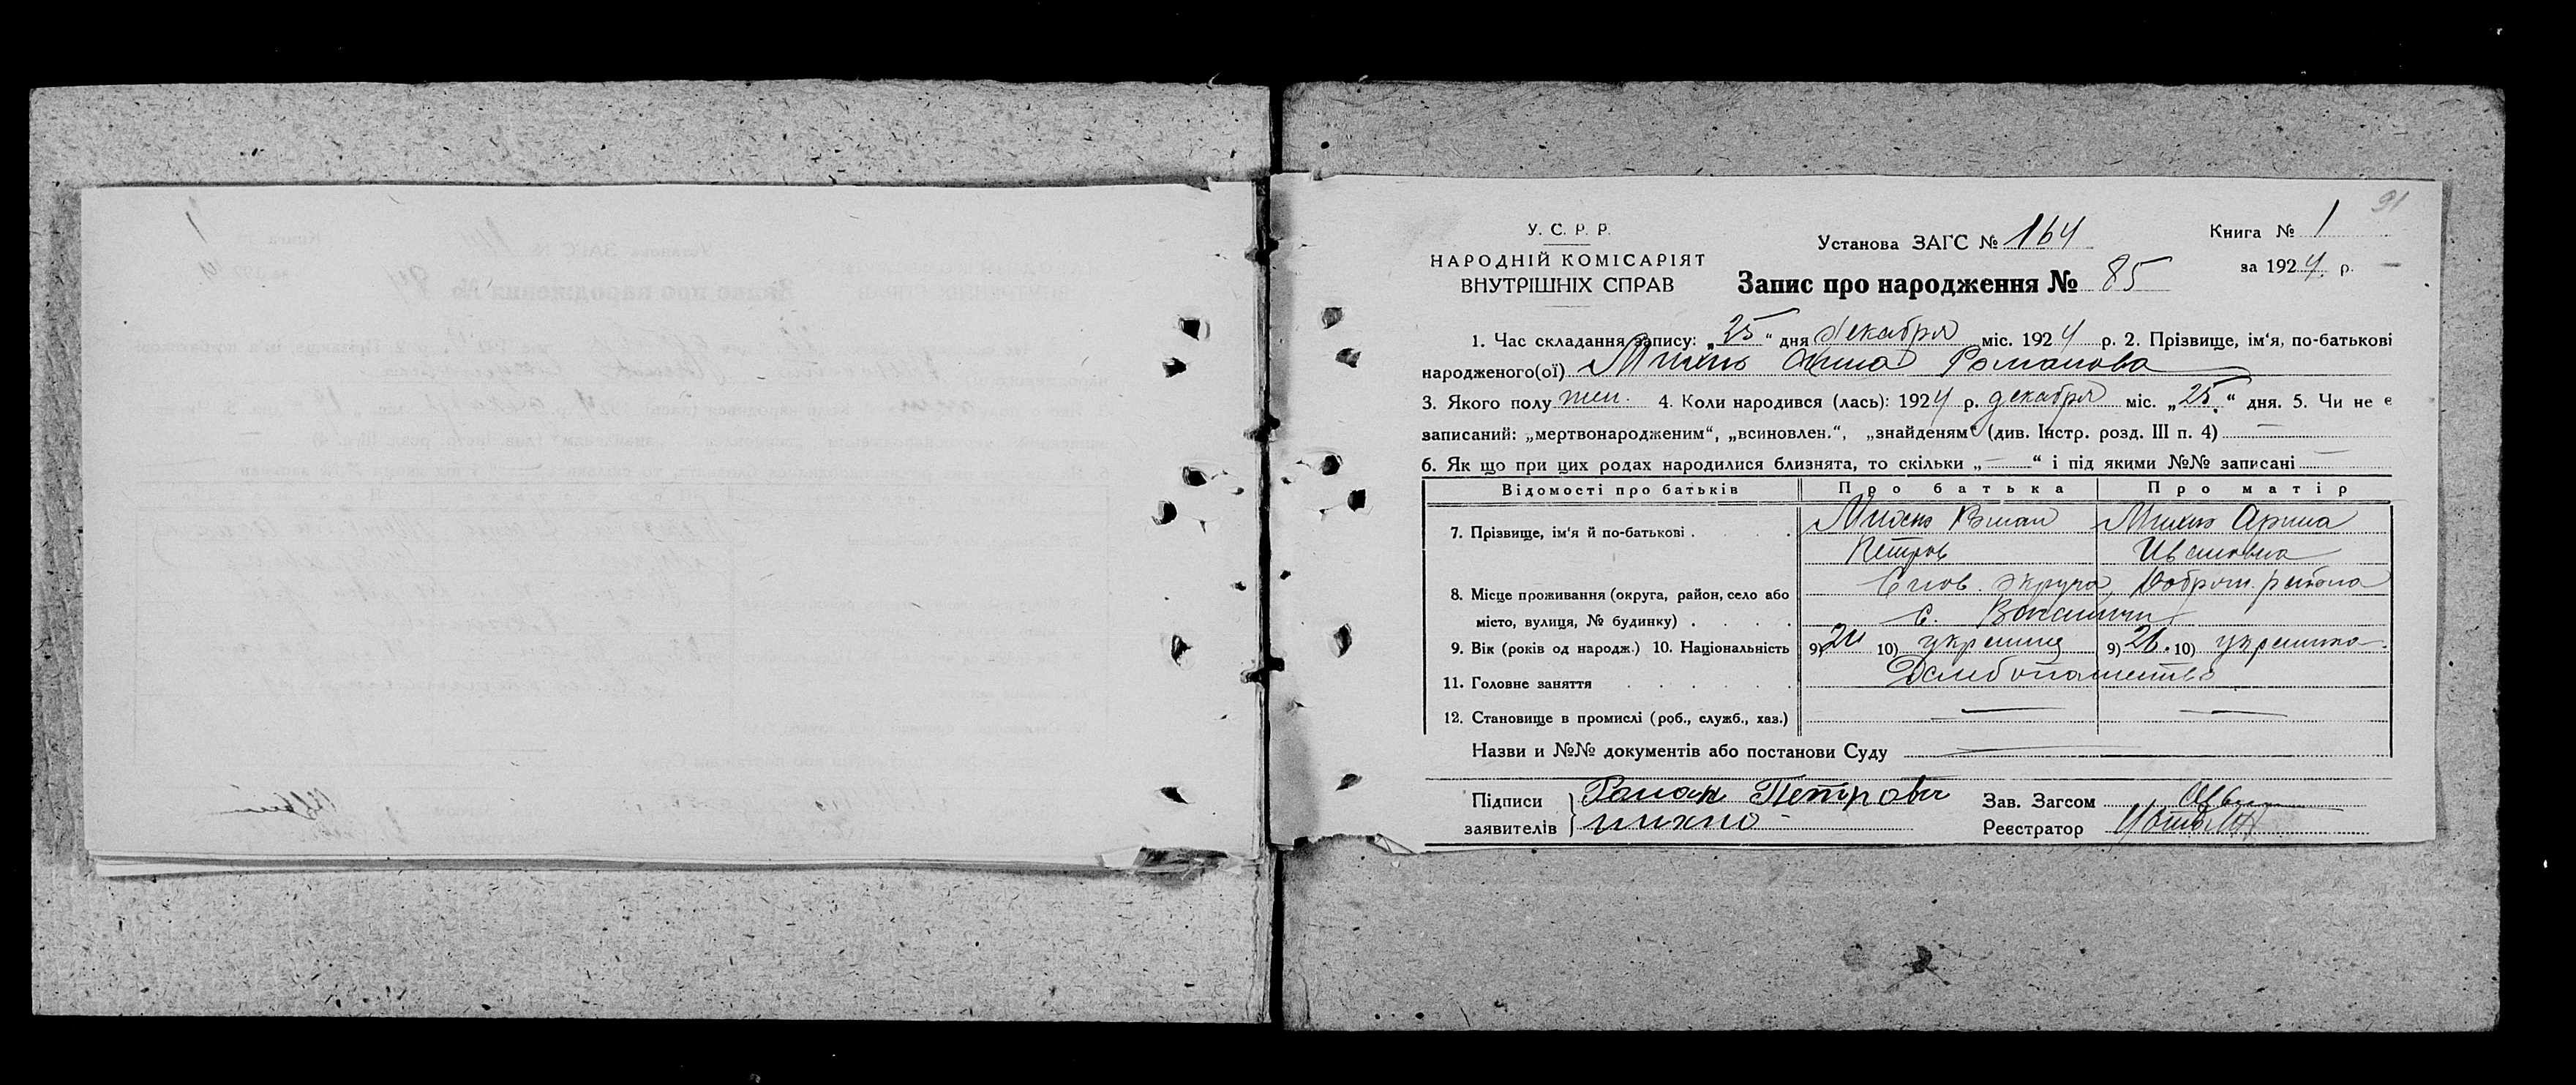 91
У. С. Р. Р.
НАРОДНІЙ КОМІСАРІЯТ
ВНУТРІШНІХ СПРАВ
Установа ЗАГС № 164
Книга № 1
за 1924 р. —
Запис про народження № 85
1. Час складання запису: „25“ дня декабря міс. 1924 р. 2. Прізвище, ім‘я, по-батькові
народженого(ої) Михно Анна Романова
3. Якого полу жен. 4. Коли народився (лась): 1924 р. декабря міс. „25“ дня. 5. Чи не є
записаний: „мертвонародженим“, „всиновлен.“, „знайденям“ (див. Інстр. розд. III п. 4) —
6. Як що при цих родах народилися близнята, то скільки „—“ і під якими №№ записані —
Відомості про батьків Про батька Про матір
7. Прізвище, ім‘я й по-батькові . . . Михно Роман Михно Арина
Петров Ивановна
8. Місце проживання (округа, район, село або округа, района
місто, вулиця, № будинку) . . . . с.
9. Вік (років од народж.) 10. Національність 9) 10) украинец 9) 26. 10) украинка
11. Головне заняття . . . . . . Хлебопашество
12. Становище в промислі (роб., служб., хаз.) — —
Назви и №№ документів або постанови Суду —
Підписи Роман Петрович Зав. Загсом
заявителів михно Реєстратор